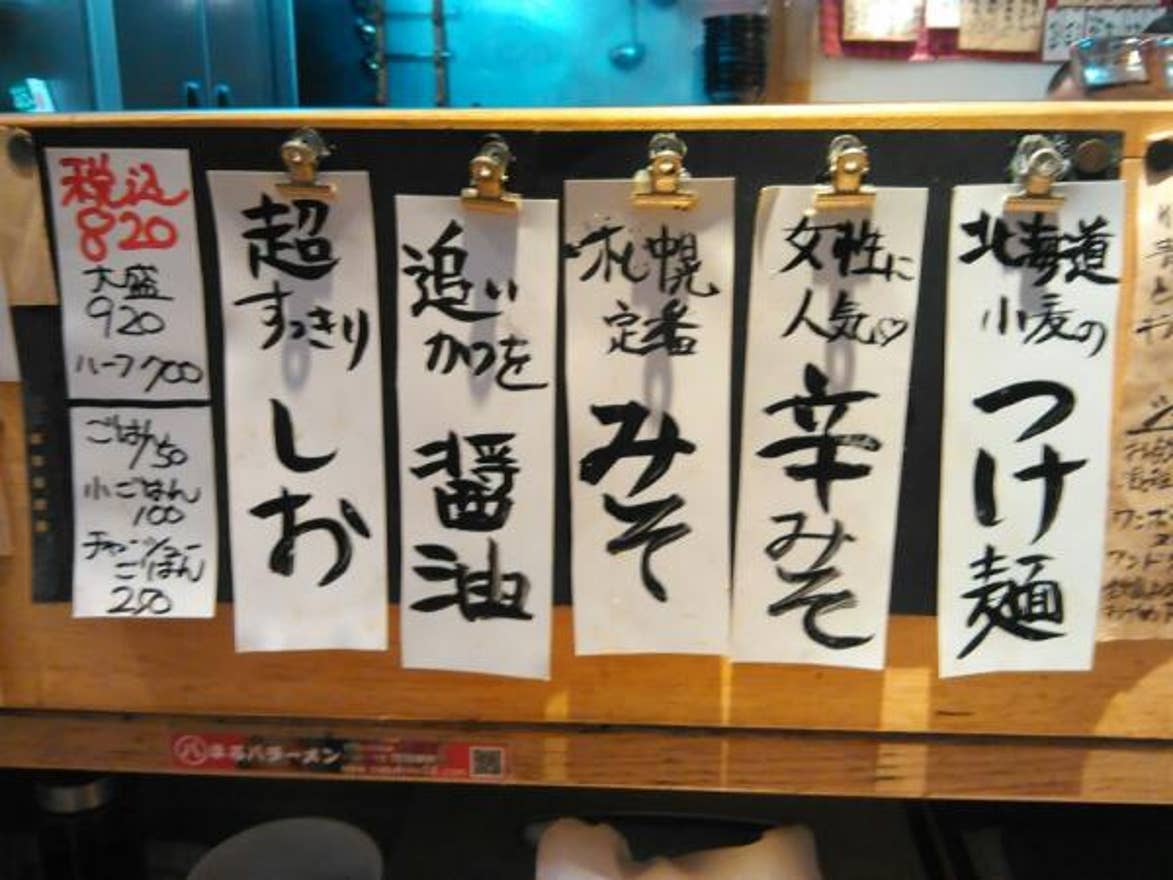 税込
820
大盛
920
ハーフ700
ごはん
150
小ごはん
100
チャーシュー
ごはん
250
超
すっきり
しお
追い
かつを
醤油
札幌
定番
みそ
女性に
人気♡
辛みそ
北海道
小麦の
つけ麺